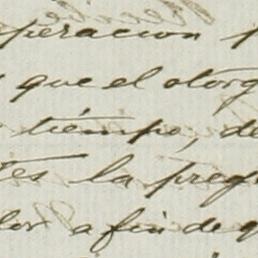 peracion p
que el otorg
tiempo, de
es la preg
los a fin de q